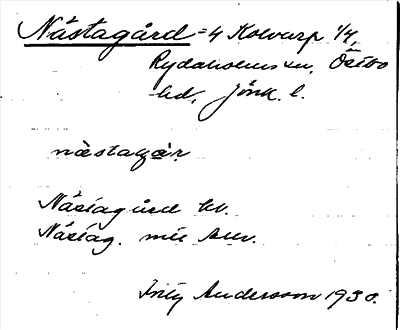 Nästagård = 4 Kolvarp 1/4,
Rydaholms sn, Östbo
hd, Jönk. l.
nästagår
Nästagård
Nästag. mil
Andersson 1930.